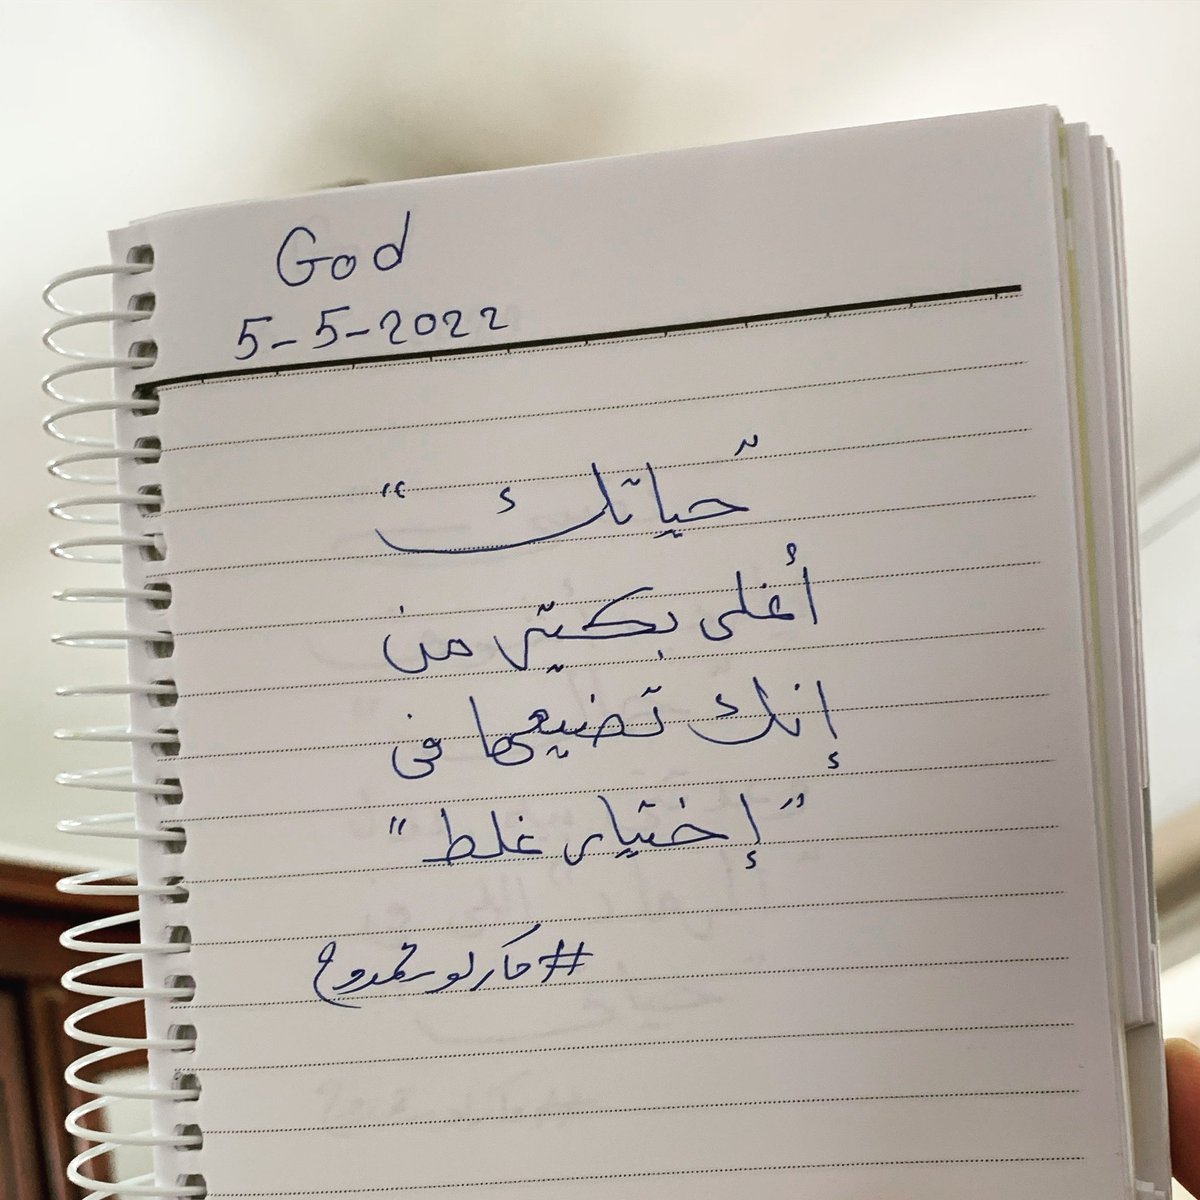 God
5-5-2022
"حياتك"
أغلى بكتير من
إنك تضيعها فى
"إختيار غلط"
#ماركو_ممدوح